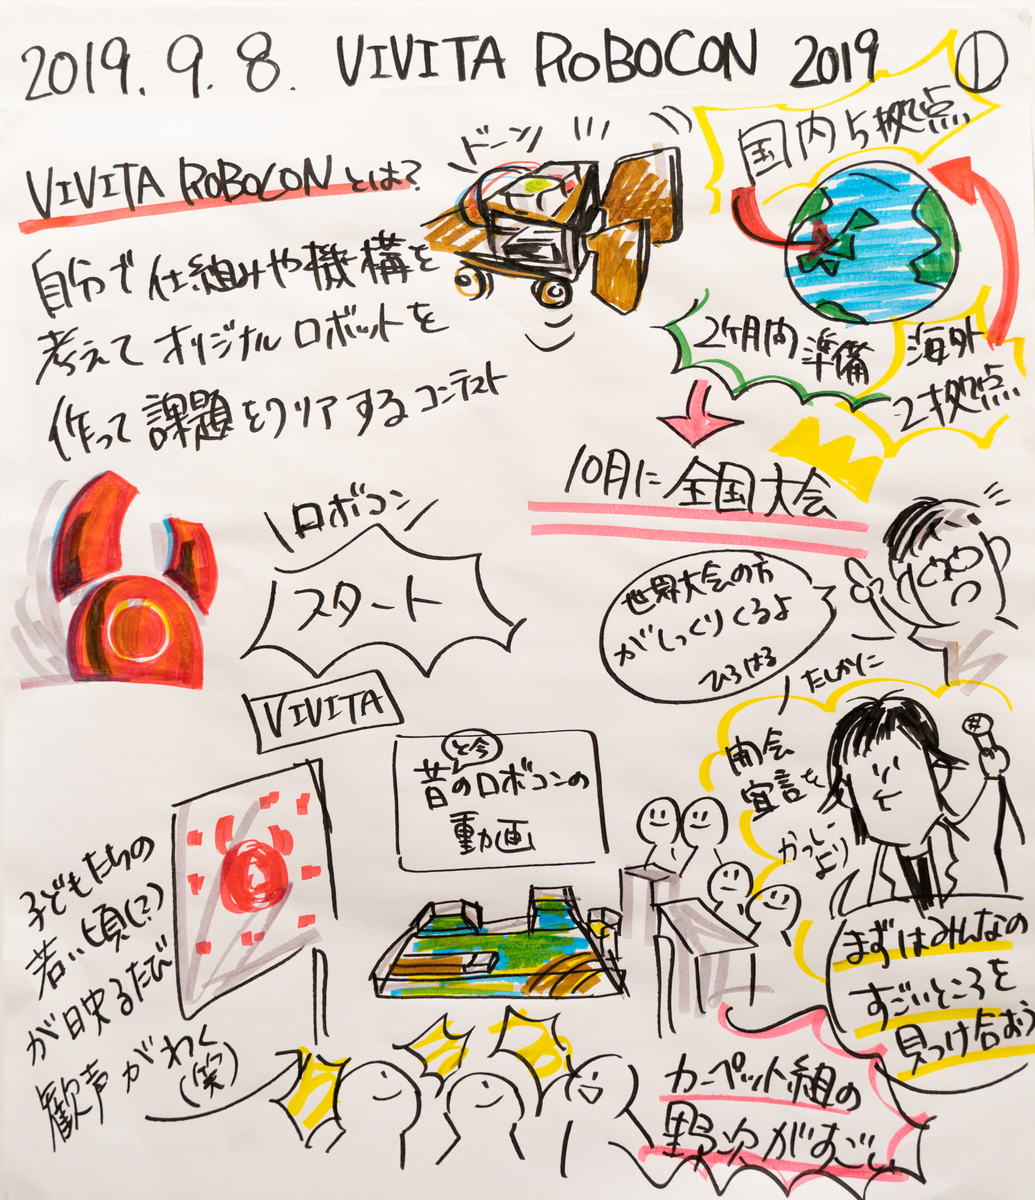 2019.9.8. VIVITA ROBOCON 2019 ①
VIVITA ROBOCONとは?
自分で仕組みや機構を
考えてオリジナルロボットを
作って課題をクリアするコンテスト
ドーン
国内5拠点
2ケ月間準備
海外
2拠点
10月に全国大会
世界大会の方
がしっくりくるよ
ひろはる
たしかに
ロボコン
スタート
VIVITA
昔と今のロボコンの
動画
開会
宣言を
かっしー
より
まずはみんなの
すごいところを
見つけ合おう
子どもたちの
若い頃(?)
が映るたび
歓声がわく
(笑)
カーペット組の
野次がすごい